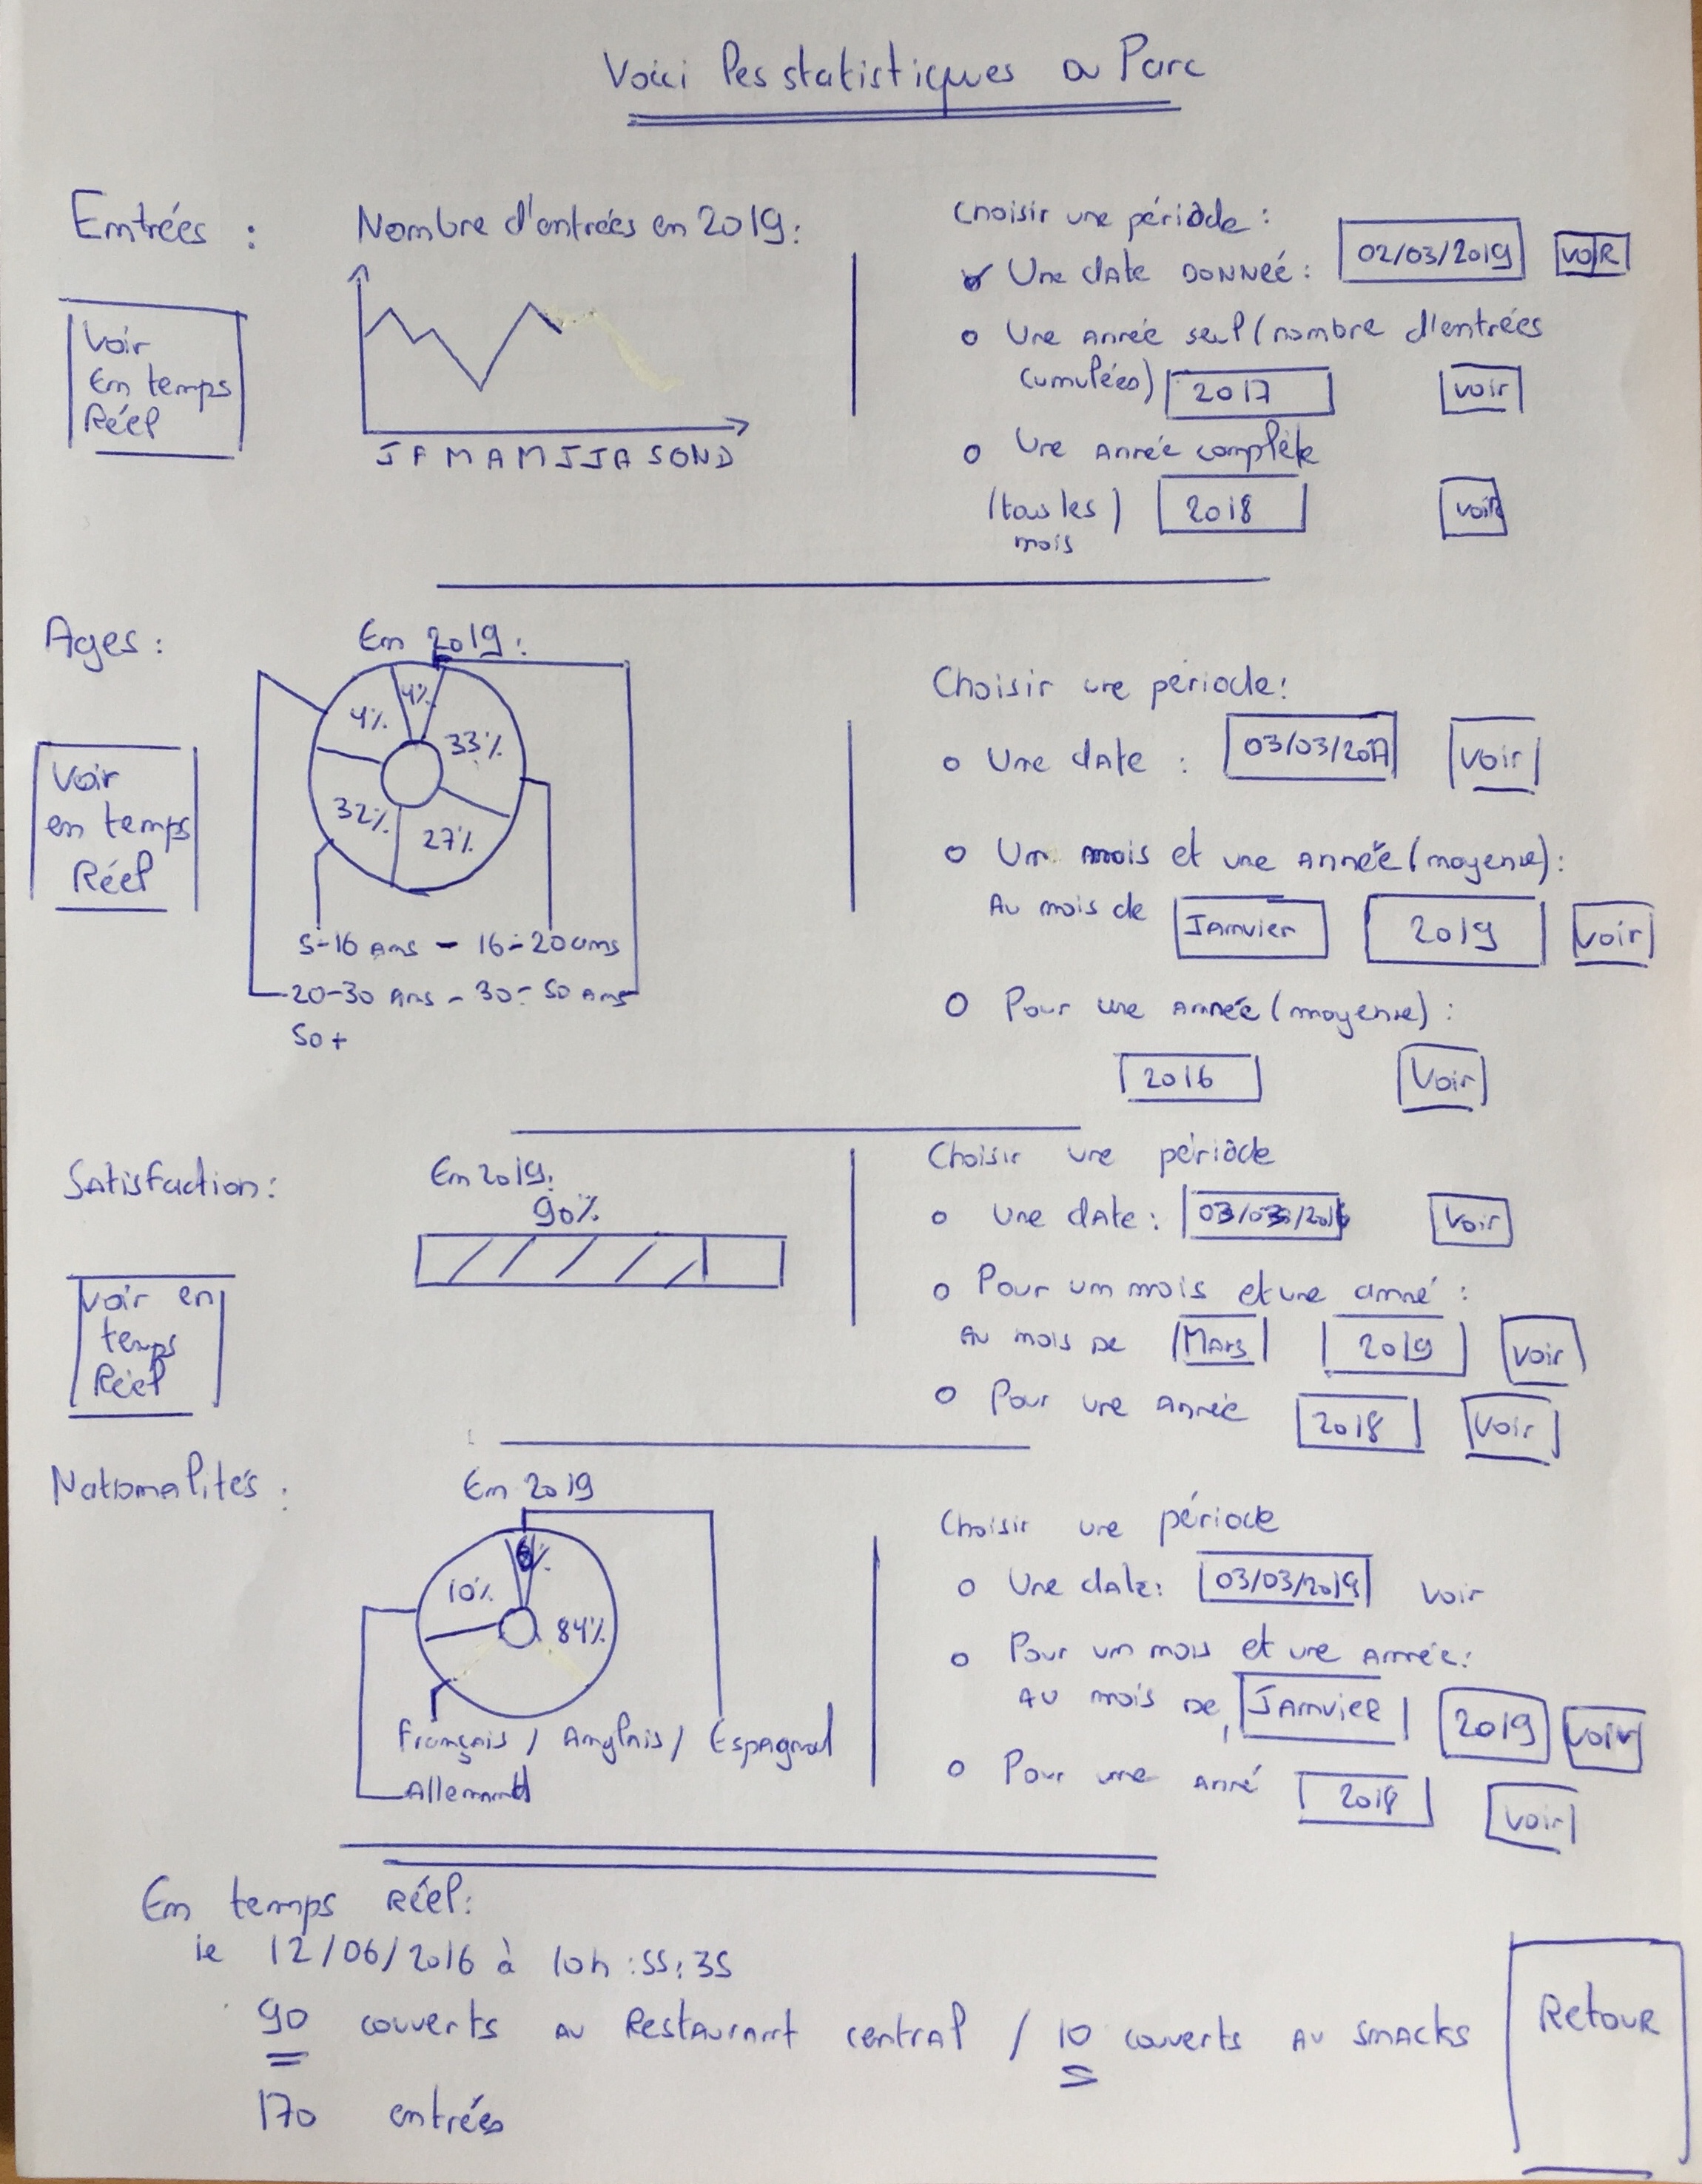 Voici les statistiques du Parc
Entrées :
Voir
En temps
Réel
Nombre d'entrées en 2019 :
J F M A M J J A S O N D
Choisir une période :
Une date DONNéé : 02/03/2019 VOIR
Une Année seul (nombre d'entrées
cumulées) 2017 voir
Une Année complète
(tous les) 2018 voir
mois
Ages :
Voir
en temps
Réel
En 2019 :
4% 4% 33%
32% 27%
5-16 Ans - 16-20 ans
20-30 Ans - 30-50 Ans
50+
Choisir une période :
Une date : 03/03/2017 Voir
Un mois et une Année (moyenne) :
Au mois de Janvier 2019 Voir
Pour une Année (moyenne) :
2016 Voir
Satisfaction :
Voir en
temps
Réel
En 2019 :
90%
Choisir une période
Une date : 03/03/2016 Voir
Pour un mois et une anné :
Au mois DE Mars 2019 Voir
Pour une Année 2018 Voir
Nationalités :
En 2019
10% 6% 84%
Français / Anglais / Espagnol
Allemand
Choisir une période
Une date : 03/03/2019 Voir
Pour un mois et une Année :
AU mois DE Janvier 2019 Voir
Pour une Anné 2018 Voir
En temps Réel :
le 12/06/2016 à 10h :55:35
90 couverts AU Restaurant central / 10 couverts AU snacks
170 entrées
Retour